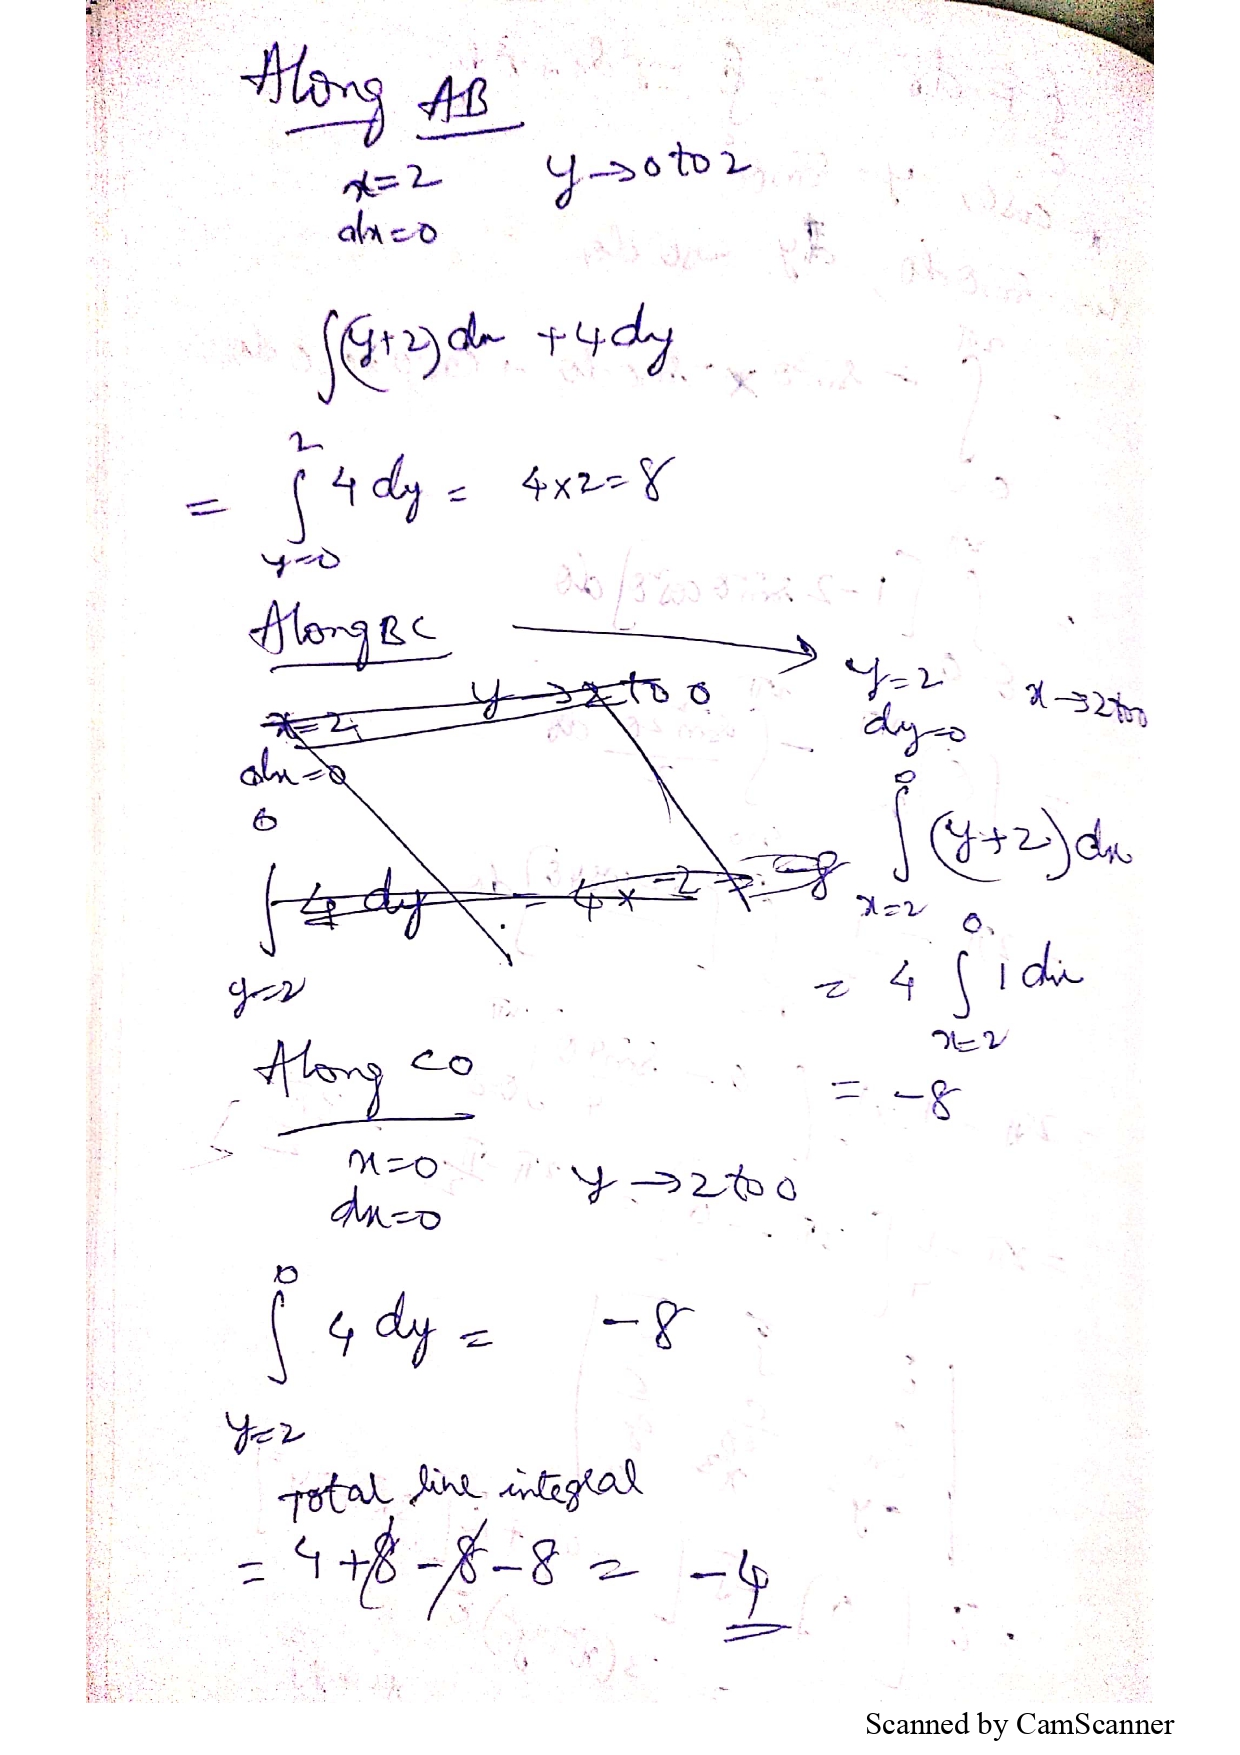 Along AB
x=2 y→0 to 2
dx=0
∫(y+2)dx +4dy
2
= ∫ 4 dy = 4×2=8
y=0
Along BC
x=2 y→2 to 0
dx=0
0
∫ 4 dy = 4× -2 = -8
y=2
y=2 x→2 to 0
dy=0
0
∫ (y+2)dx
x=2
0
= 4 ∫ 1 dx
x=2
= -8
Along CO
x=0 y→2 to 0
dx=0
0
∫ 4 dy = -8
y=2
Total line integral
= 4+8-8-8 = -4
Scanned by CamScanner